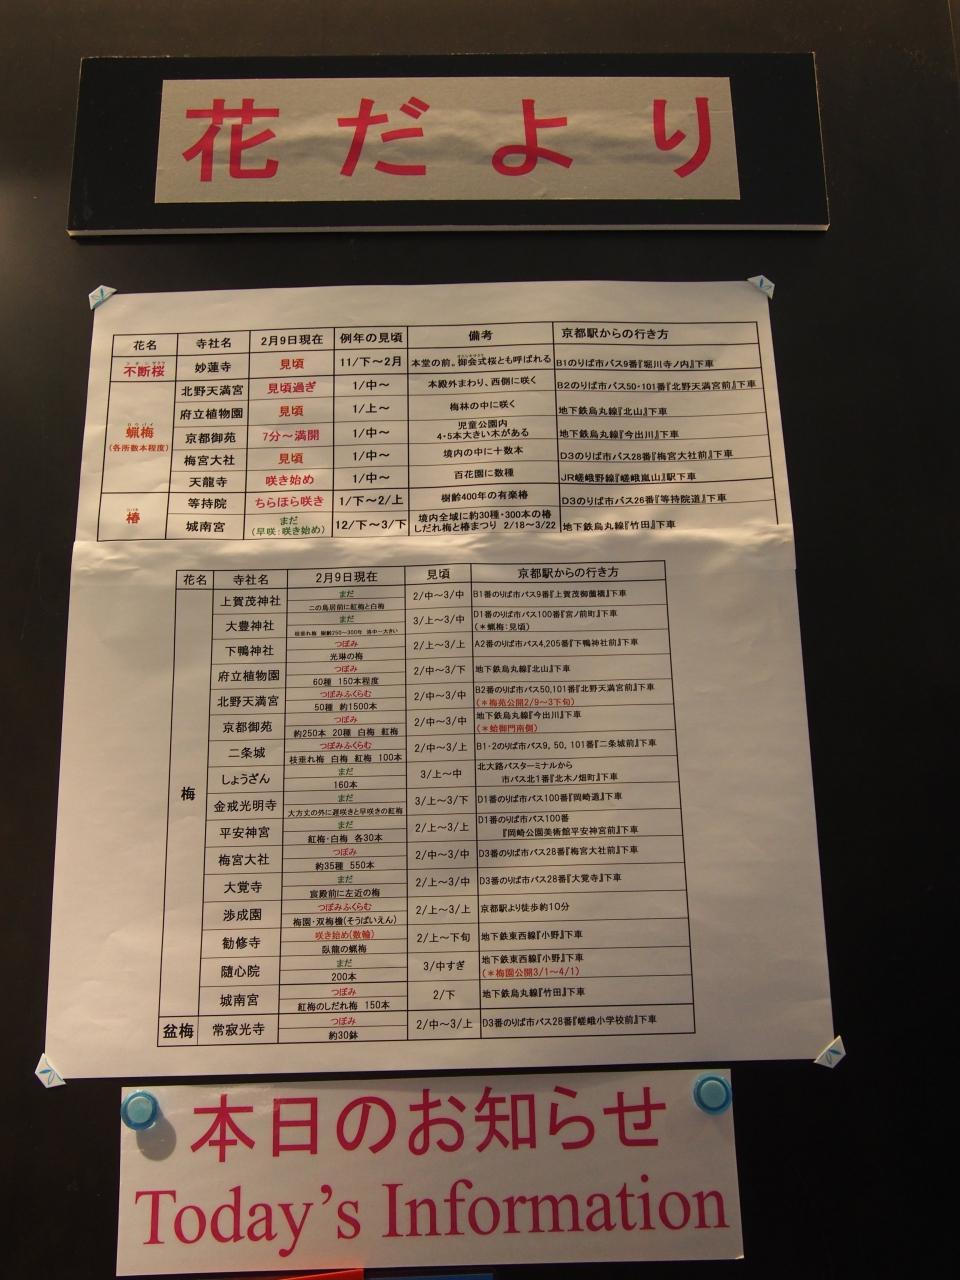 花だより
花名 寺社名 2月9日現在 例年の見頃 備考 京都駅からの行き方
不断桜 妙蓮寺 見頃 11/下～2月 本堂の前。御会式桜とも呼ばれる B1のりば市バス9番『堀川寺ノ内』下車
蝋梅 (各所数本程度) 北野天満宮 見頃過ぎ 1/中～ 本殿外まわり、西側に咲く B2のりば市バス50・101番『北野天満宮前』下車
府立植物園 見頃 1/上～ 梅林の中に咲く 地下鉄烏丸線『北山』下車
京都御苑 7分～満開 1/中～ 児童公園内 4・5本大きい木がある 地下鉄烏丸線『今出川』下車
梅宮大社 見頃 1/中～ 境内の中に十数本 D3のりば市バス28番『梅宮大社前』下車
天龍寺 咲き始め 1/中～ 百花園に数種 JR嵯峨野線『嵯峨嵐山』駅下車
椿 等持院 ちらほら咲き 1/下～2/上 樹齢400年の有楽椿 D3のりば市バス26番『等持院道』下車
城南宮 まだ (早咲:咲き始め) 12/下～3/下 境内全域に約30種・300本の椿 しだれ梅と椿まつり 2/18～3/22 地下鉄烏丸線『竹田』下車
花名 寺社名 2月9日現在 見頃 京都駅からの行き方
梅 上賀茂神社 まだ 二の鳥居前に紅梅と白梅 2/中～3/中 B1番のりば市バス9番『上賀茂御薗橋』下車
大豊神社 まだ 枝垂れ梅 樹齢250～300年 洛中一大きい 3/上～3/中 D1番のりば市バス100番『宮ノ前町』下車 (＊蝋梅:見頃)
下鴨神社 つぼみ 光琳の梅 2/上～3/上 A2番のりば市バス4,205番『下鴨神社前』下車
府立植物園 つぼみ 60種 150本程度 2/中～3/下 地下鉄烏丸線『北山』下車
北野天満宮 つぼみふくらむ 50種 約1500本 2/中～3/中 B2番のりば市バス50,101番『北野天満宮前』下車 (＊梅苑公開2/9～3下旬)
京都御苑 つぼみ 約250本 20種 白梅 紅梅 2/中～3/中 地下鉄烏丸線『今出川』下車 (＊蛤御門南側)
二条城 つぼみふくらむ 枝垂れ梅 白梅 紅梅 100本 2/中～3/上 B1・2のりば市バス9, 50, 101番『二条城前』下車
しょうざん まだ 160本 3/上～中 北大路バスターミナルから 市バス北1番『北木ノ畑町』下車
金戒光明寺 まだ 大方丈の外に遅咲きと早咲きの紅梅 3/上～3/下 D1番のりば市バス100番『岡崎道』下車
平安神宮 まだ 紅梅・白梅 各30本 2/上～3/上 D1番のりば市バス100番 『岡崎公園美術館平安神宮前』下車
梅宮大社 つぼみ 約35種 550本 2/中～3/中 D3番のりば市バス28番『梅宮大社前』下車
大覚寺 まだ 宸殿前に左近の梅 2/上～3/中 D3番のりば市バス28番『大覚寺』下車
渉成園 つぼみふくらむ 梅園・双梅檐(そうばいえん) 2/上～3/上 京都駅より徒歩約10分
勧修寺 咲き始め(数輪) 臥龍の蝋梅 2/上～下旬 地下鉄東西線『小野』下車
随心院 まだ 200本 3/中すぎ 地下鉄東西線『小野』下車 (＊梅園公開3/1～4/1)
城南宮 つぼみ 紅梅のしだれ梅 150本 2/下 地下鉄烏丸線『竹田』下車
盆梅 常寂光寺 つぼみ 約30鉢 2/中～3/上 D3番のりば市バス28番『嵯峨小学校前』下車
本日のお知らせ
Today's Information